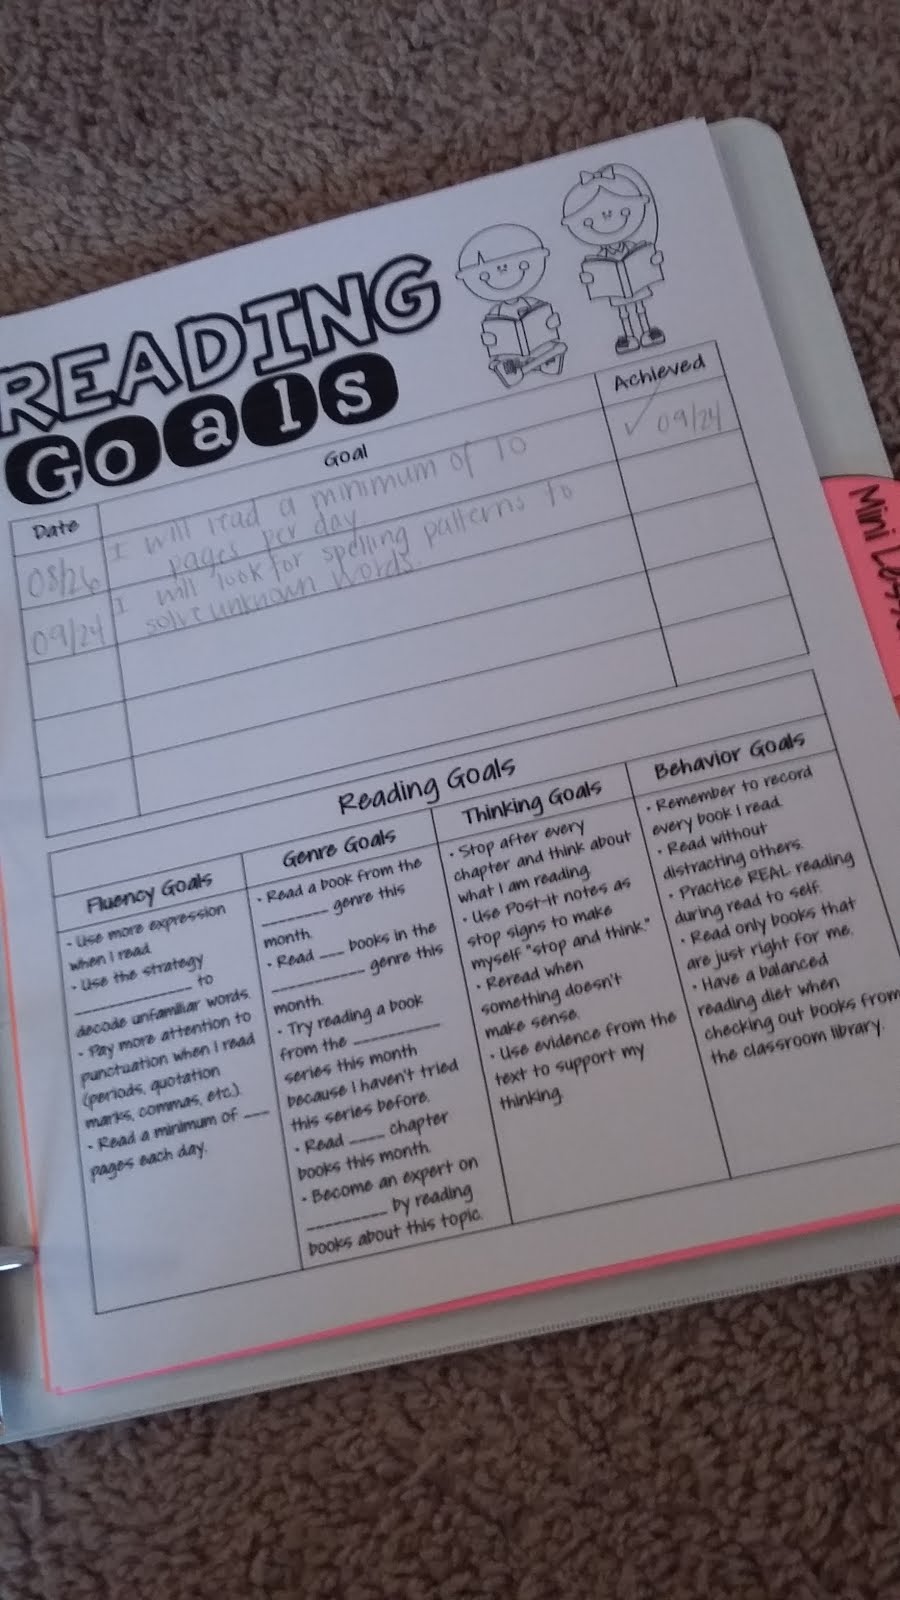 READING
Goals
Date Goal Achieved
08/26 I will read a minimum of 10 ✓ 09/24
pages per day.
09/24 I will look for spelling patterns to
solve unknown words.
Reading Goals
Fluency Goals
• Use more expression
when I read.
• Use the strategy
____________ to
decode unfamiliar words.
• Pay more attention to
punctuation when I read
(periods, quotation
marks, commas, etc.).
• Read a minimum of ___
pages each day.
Genre Goals
• Read a book from the
_______ genre this
month.
• Read ___ books in the
__________ genre this
month.
• Try reading a book
from the _________
series this month
because I haven't tried
this series before.
• Read ____ chapter
books this month.
• Become an expert on
_________ by reading
books about this topic.
Thinking Goals
• Stop after every
chapter and think about
what I am reading.
• Use Post-it notes as
stop signs to make
myself "stop and think."
• Reread when
something doesn't
make sense.
• Use evidence from the
text to support my
thinking.
Behavior Goals
• Remember to record
every book I read.
• Read without
distracting others.
• Practice REAL reading
during read to self.
• Read only books that
are just right for me.
• Have a balanced
reading diet when
checking out books from
the classroom library.
Mini